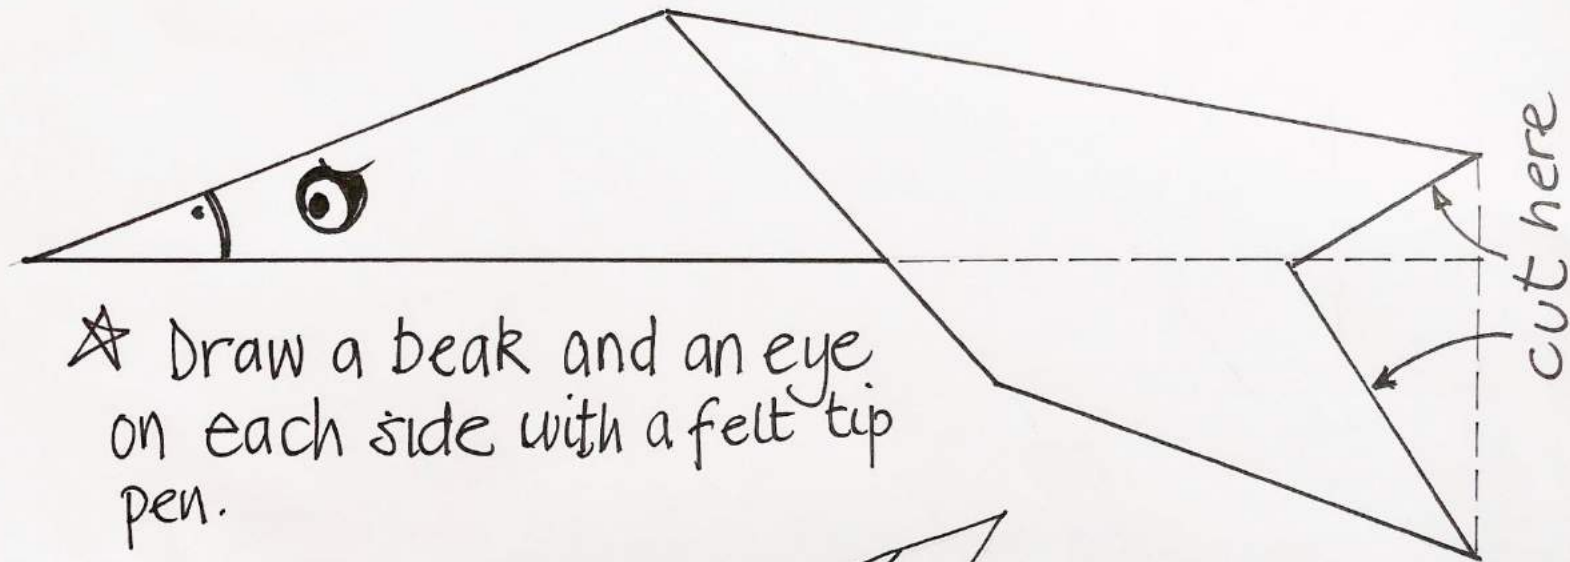 ☆ Draw a beak and an eye
on each side with a felt tip
pen.
cut here